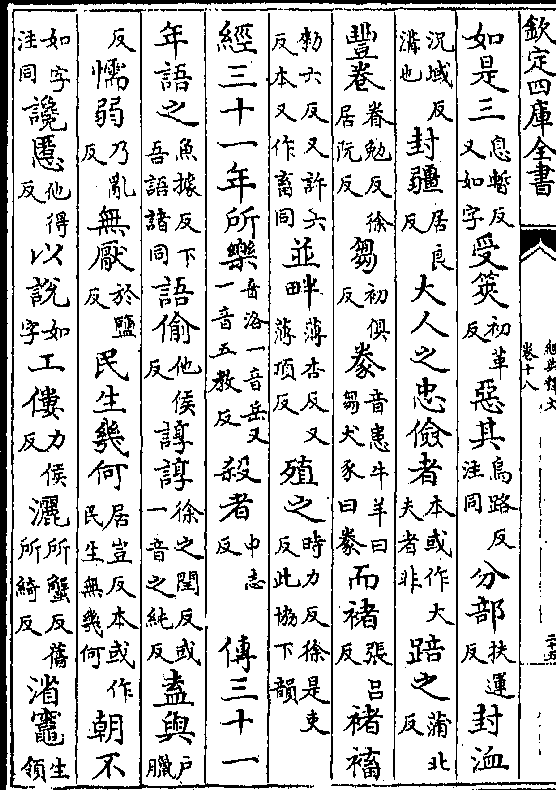 欽定四庫全書
經典釋文
卷十八
如是三息暫反又如字受筴初革反惡其烏路反注同分部扶運反封洫
況域反溝也封疆居良反大人之忠儉者本或作大夫者非踣之蒲北反
豐卷眷勉反徐居阮反芻初俱反豢音患牛羊曰芻犬豕曰豢而褚張呂反褚蓄
勑六反又許六反本又作畜同並畔薄杏反又薄項反殖之時力反徐是吏反此協下韻
經三十一年所樂音洛一音岳又一音五教反殺者申志反　傳三十一
年語之魚據反下吾語諸同語偷他侯反諄諄徐之閏反或一音之純反盍與戶臘
反懦弱乃亂反無厭於鹽反民生幾何居豈反本或作民生無幾何朝不
如字注同讒慝他得反以說如字工僂力侯反灑所蟹反舊所綺反渻竈生領